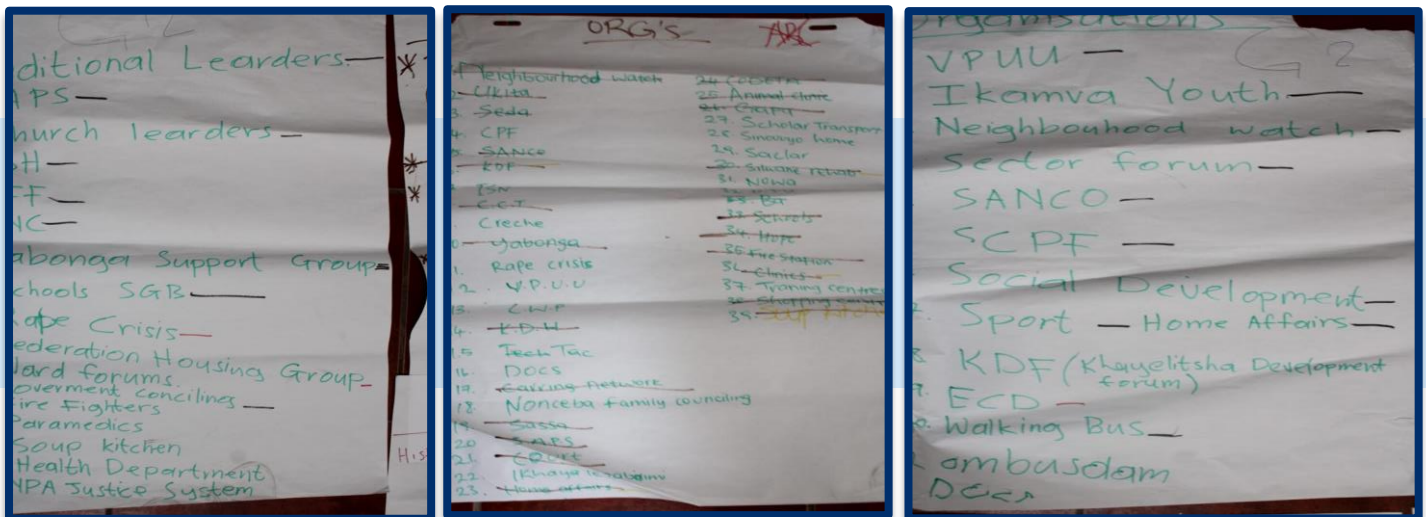 G2
ditional Learders
APS
hurch learders
SH
FF
NC
abonga Support Group
chools SGB
Rape Crisis
ederation Housing Group
ward forums.
overment concilines
ire Fighters
Paramedics
Soup kitchen
Health Department
NPA Justice System
His
ORG's
Neighbourhood watch
2. Ukita
3. Seda
4. CPF
5. SANCO
KDF
ESN
C.C.T
Creche
Yabonga
1. Rape crisis
2. V.P.U.U
13. C.W.P
4. K.D.H
15 Tech Tac
16. DOCS
17. Carring Network
18. Nonceba family counciling
19. Sassa
20 SAPS
21. Court
22
23. Home affairs
24 CODETA
25. Animal clinic
27. Scholar Transport
28. Sinovuyo home
29. Saclar
30. rehab
31. Nowa
33. Schools
34. Hope
35 Fire Station
36. Clinics
37. Traning centres
38. Shopping
39.
rganisations
G2
VPUU
Ikamva Youth
Neighbouhood watch
Sector forum
SANCO
SCPF
Social Development
Sport – Home Affairs
8. KDF (Khayelitsha Development
forum)
9. ECD
0. Walking Bus
ombusdam